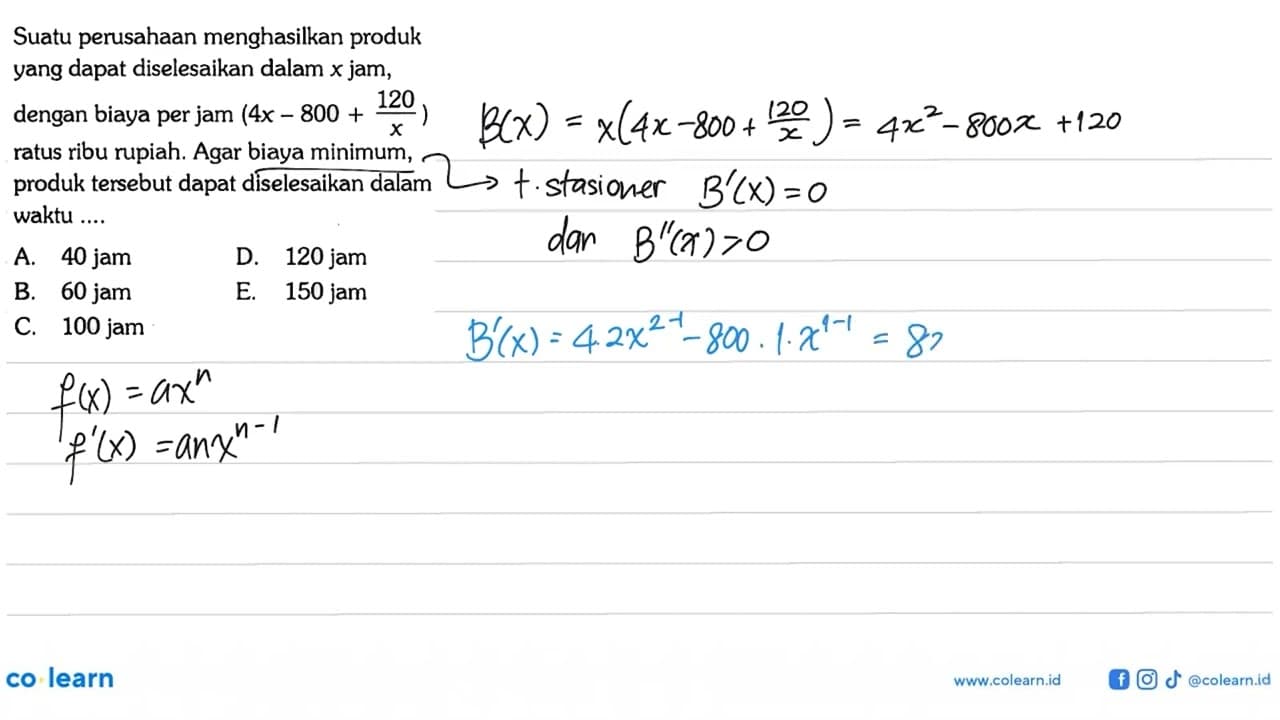 Suatu perusahaan menghasilkan produk
yang dapat diselesaikan dalam x jam,
dengan biaya per jam (4x – 800 + 120/x)
ratus ribu rupiah. Agar biaya minimum,
produk tersebut dapat diselesaikan dalam
waktu ....
A. 40 jam D. 120 jam
B. 60 jam E. 150 jam
C. 100 jam
B(x) = x(4x-800+120/x) = 4x²-800x+120
t. stasioner B'(x)=0
dan B''(x)>0
B'(x) = 4.2x²⁻¹-800.1.x¹⁻¹ = 8
f(x) = axⁿ
f'(x) = anxⁿ⁻¹
co learn
www.colearn.id
@colearn.id